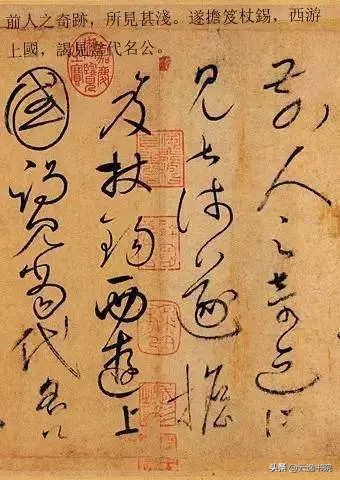 前人之奇跡，所見甚淺。遂擔笈杖錫，西游
上國，謁見當代名公。
嘉慶御覽之寶
前人之奇迹所
見甚淺遂擔
笈杖錫西遊上
國謁見當代名公
头条 @云逸书院